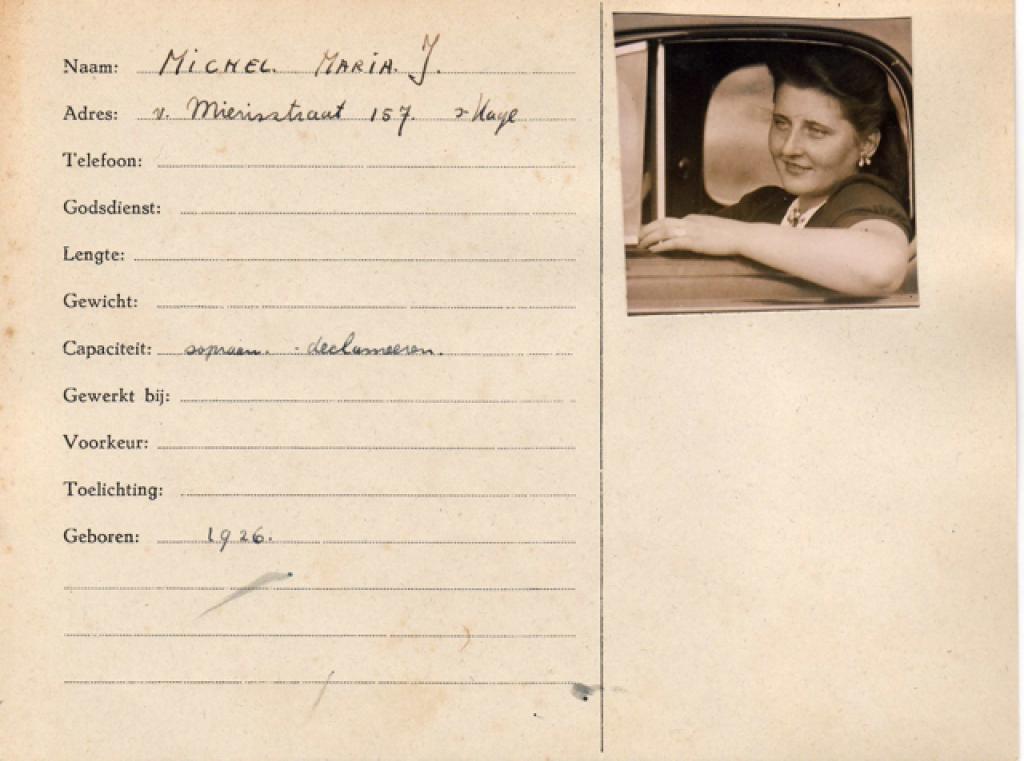 Naam: MICHEL. MARIA. J.
Adres: v. Mierisstraat 157. s-Hage
Telefoon:
Godsdienst:
Lengte:
Gewicht:
Capaciteit: sopraan. - declameeren.
Gewerkt bij:
Voorkeur:
Toelichting:
Geboren: 1926.